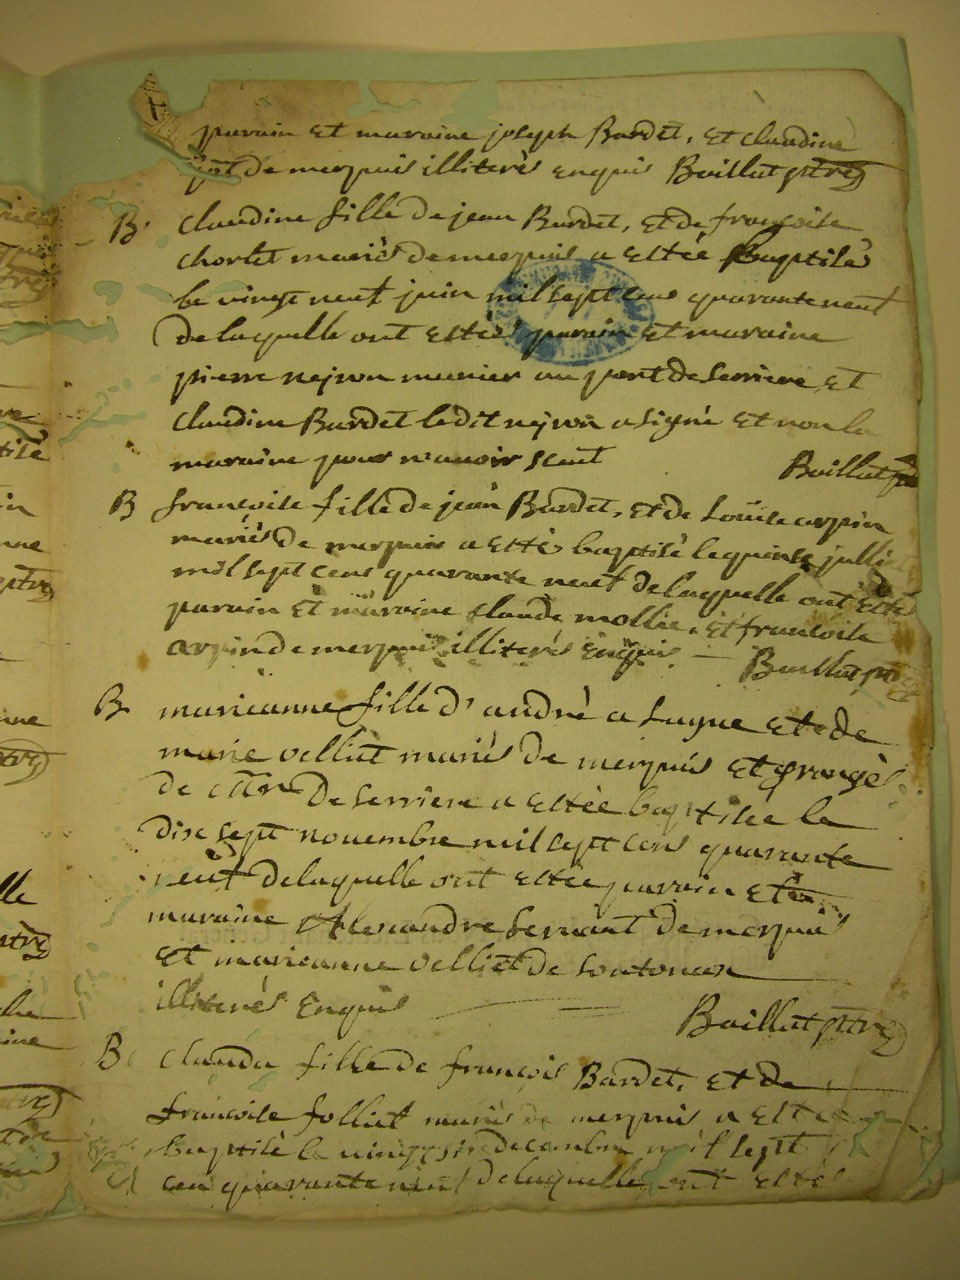 parain et maraine joseph Bardet, et claudine
de merpuis illiterés enquis Baillat ptre
B claudine fille de jean Bardet, et de françoise
chorlet mariés de merpuis a estée baptisée
le vingt neuf juin mil sept cens quarante neuf
de laquelle ont estés parain et maraine
pierre nejron munier au pont de serriere et
claudine Bardet ledit nejron a signé et non la
maraine pour n'auoir sceut Baillat
B françoise fille de jean Bardet, et de Loüise arpin
mariés de merpuis a estés baptisé le quinse julli
mil sept cens quarante neuf de laquelle ont estés
parain et maraine claude mollie, et francoise
arpin de merpuis illiterés enquis Baillat ptre
B marieanne fille d'andré a Lugne et de
marie velliet mariés de merpuis et grangés
de de serriere a estée baptisée le
dix sept nouembre mil sept cens quarante
neuf de laquelle ont estée parain et
maraine Alexandre seruant de merpuis
et marieanne velliet de soutonax
illiterés enquis Baillat ptre
B clauda fille de francois Bardet, et de
francoise folliet mariés de merpuis a estée
baptisé le vingt decembre mil sept
cen quarante neuf de laquelle ont estés